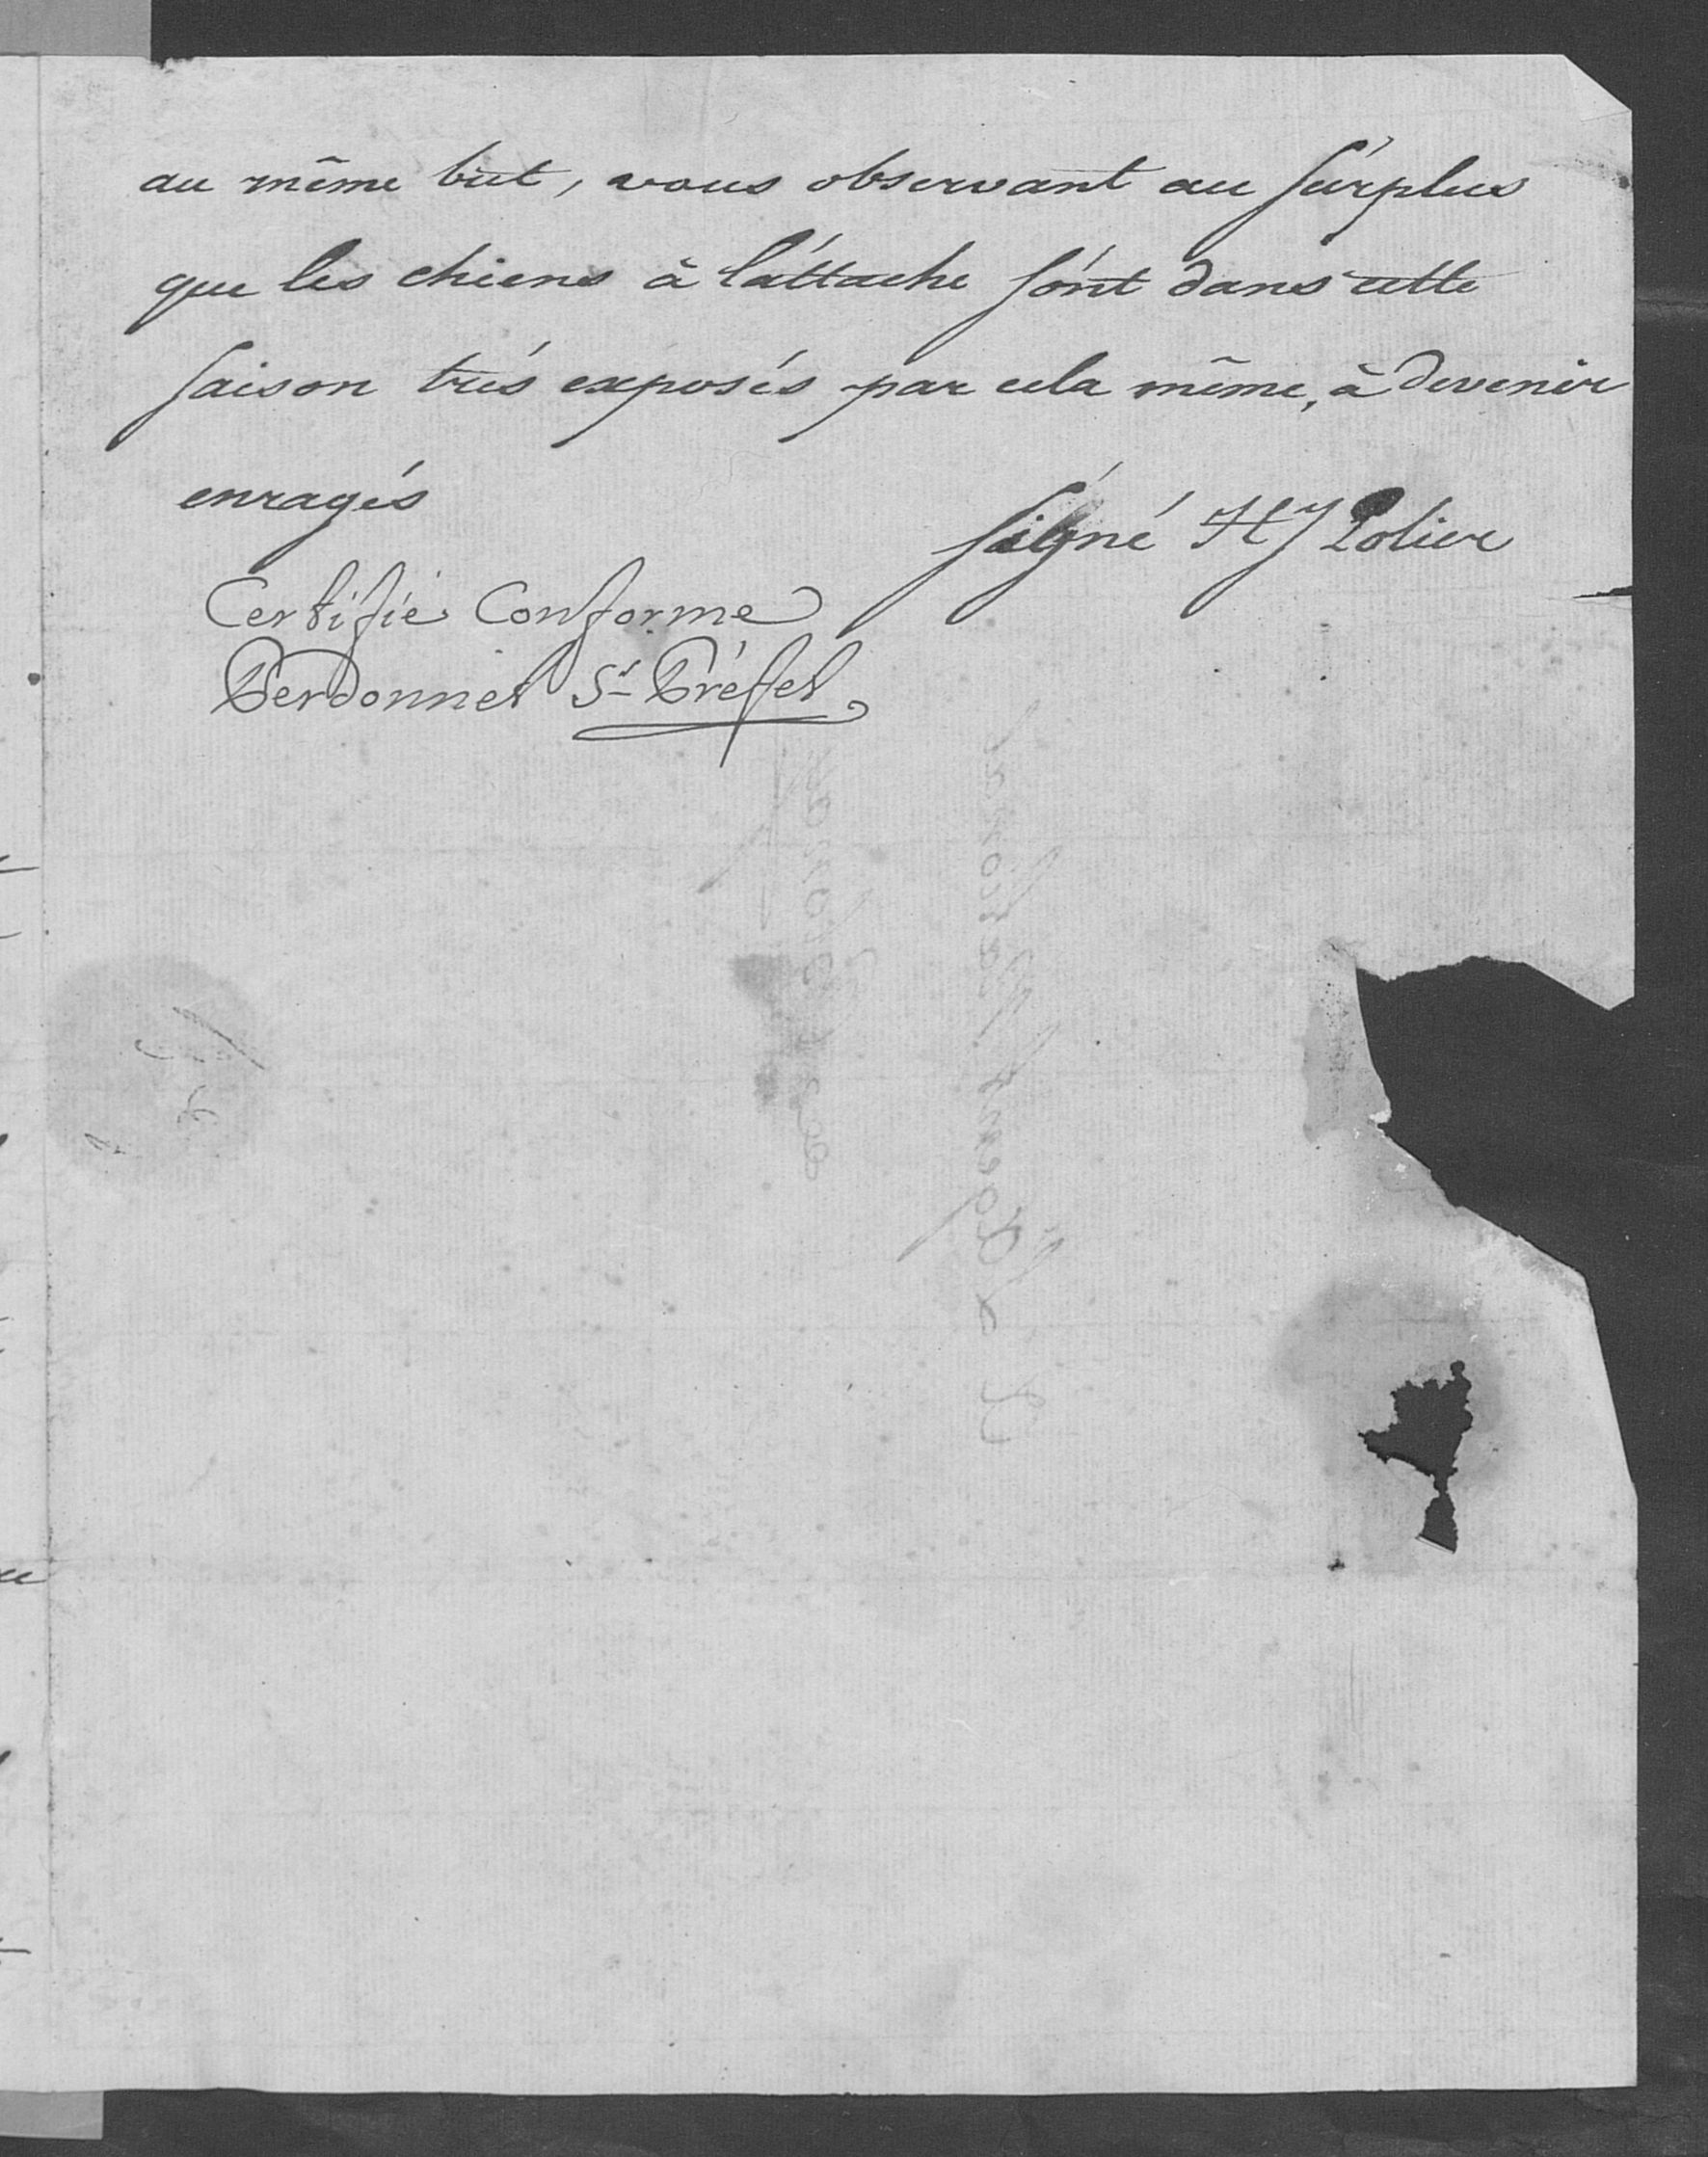 au même but, vous observant au surplus
que les chiens à l'attache sont dans cette
saison très exposés par cela même, à devenir
enragés
signé Hy Polier
Certifié Conforme
Perdonnet St Préfet